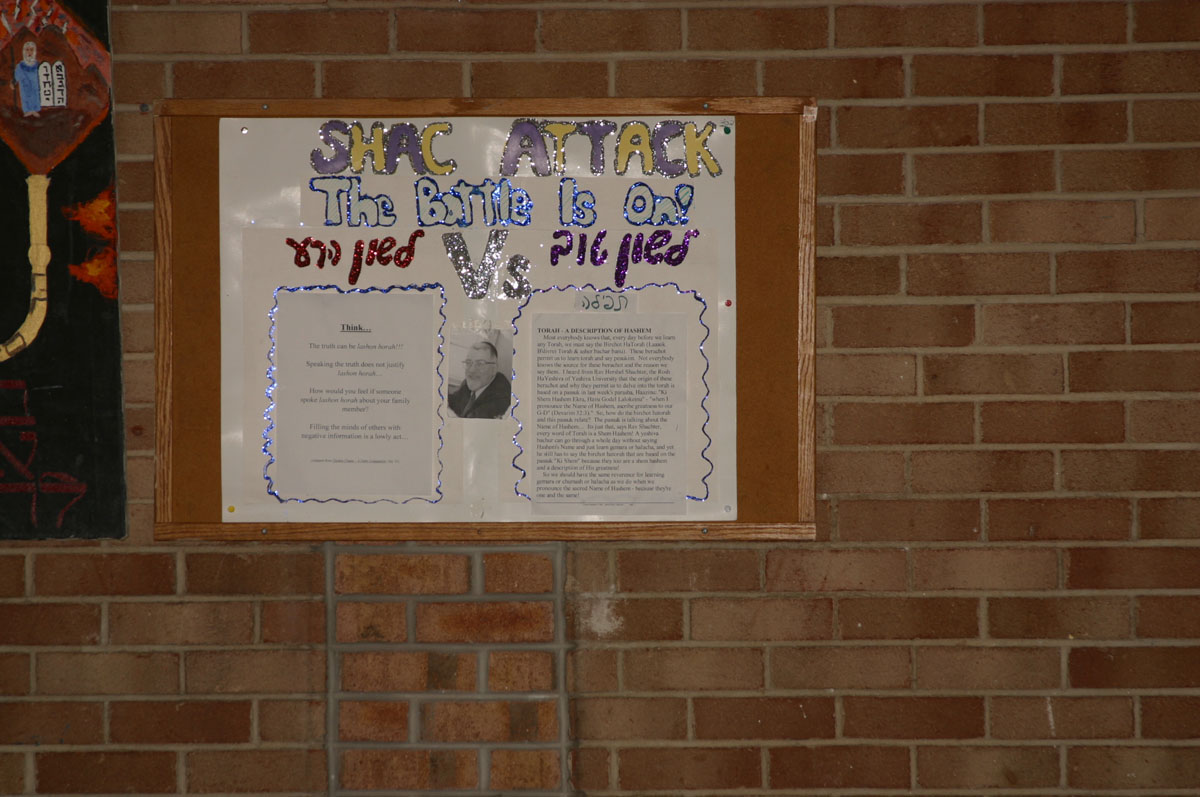 SHAC ATTACK
The Battle Is On!
לשון הרע Vs לשון טוב
Think...
The truth can be lashon horah!!!
Speaking the truth does not justify
lashon horah...
How would you feel if someone
spoke lashon horah about your family
member?
Filling the minds of others with
negative information is a lowly act...
תפילה
TORAH - A DESCRIPTION OF HASHEM
Most everybody knows that, every day before we learn
any Torah, we must say the Birchot HaTorah (Laasok
B'divrei Torah & asher bachar banu). These berachot
permit us to learn torah and say pesukim. Not everybody
knows the source for these berachot and the reason we
say them. I heard from Rav Hershel Shachter, the Rosh
HaYeshiva of Yeshiva University that the origin of these
berachot and why they permit us to delve into the torah is
based on a pasuk in last week's parasha, Haazinu. "Ki
Shem Hashem Ekra, Havu Godel Lalokeinu" - "when I
pronounce the Name of Hashem, ascribe greatness to our
G-D" (Devarim 32:3)." So, how do the birchot hatorah
and this pasuk relate? The pasuk is talking about the
Name of Hashem... Its just that, says Rav Shachter,
every word of Torah is a Shem Hashem! A yeshiva
bachur can go through a whole day without saying
Hashem's Name and just learn gemara or halacha, and yet
he still has to say the birchot hatorah that are based on the
pasuk "Ki Shem" because they too are a shem hashem
and a description of His greatness!
So we should have the same reverence for learning
gemara or chumash or halacha as we do when we
pronounce the sacred Name of Hashem - because they're
one and the same!